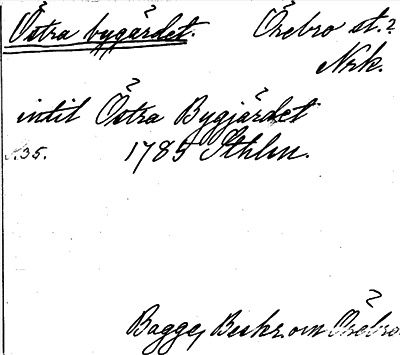 Östra bygärdet. Örebro st.?
Nrk.
intil Östra Bygjärdet
s. 35. 1785 Sthlm.
Bagge, Beskr. om Örebro